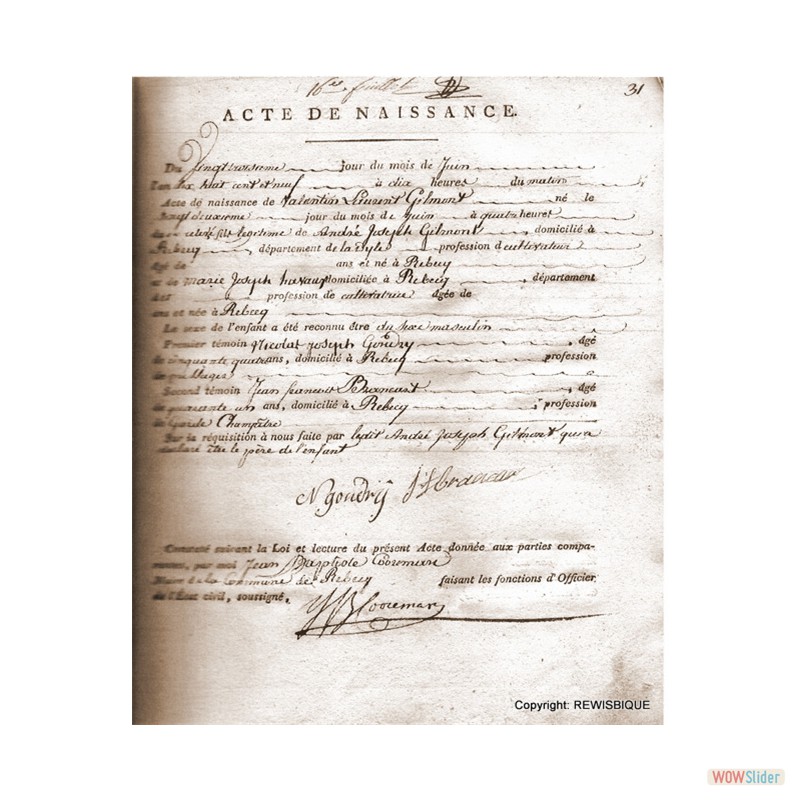 16es feuillet 31
ACTE DE NAISSANCE.
Du Vingt troisieme jour du mois de Juin
l'an dix huit cent et neuf à dix heures du matin
Acte de naissance de Valentin Laurent Gilmont né le
Vingt deuxieme jour du mois de Juin à quatre heures
fils legitime de André Joseph Gilmont, domicilié à
Rebecq, département de la Dyle profession de cultivateur
âgé de ans et né à Rebecq
et de Marie Joseph domiciliée à Rebecq, département
profession de cultivatrice âgée de
ans et née à Rebecq
Le sexe de l'enfant a été reconnu être du sexe masculin
Premier témoin Nicolas Joseph Goudry, âgé
de cinquante quatre ans, domicilié à Rebecq profession

Second témoin Jean francois Bramart, âgé
de quarante un ans, domicilié à Rebecq, profession
de Garde Champêtre
Sur la réquisition à nous faite par ledit André Joseph Gilmont qui a
déclaré être le père de l'enfant
N goudrÿ
Constaté suivant la Loi et lecture du présent Acte donnée aux parties compa-
rantes, par moi Jean Baptiste Cooreman
Maire de la Commune de Rebecq faisant les fonctions d'Officier
de l'État civil, soussigné,
JB Cooreman
Copyright: REWISBIQUE
WOWSlider